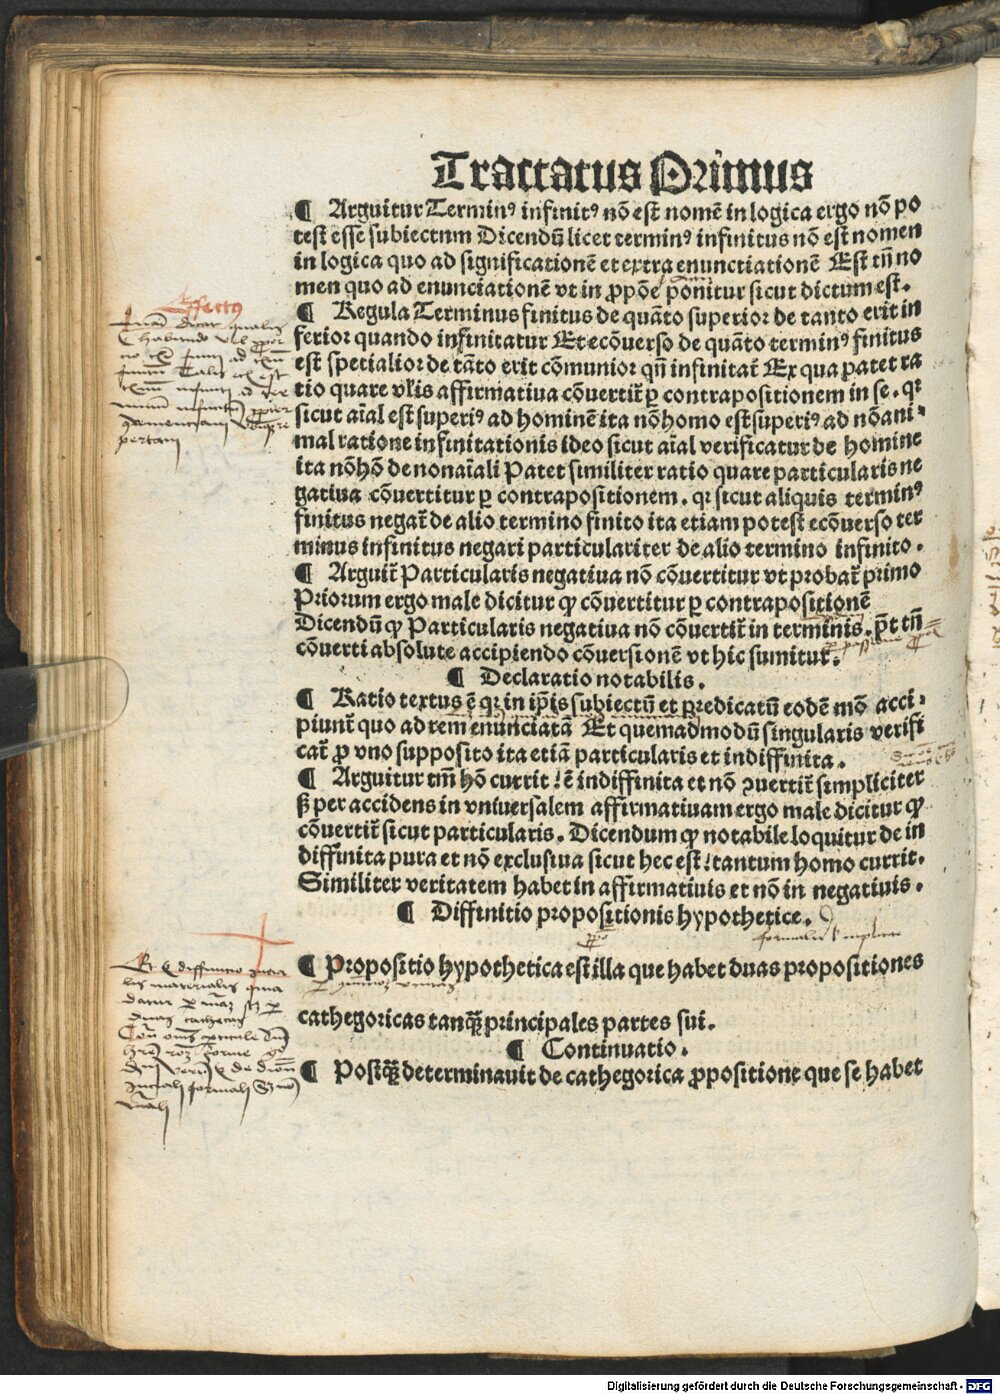 Tractatus Primus
¶ Arguitur Terminꝰ infinitꝰ nō est nomē in logica ergo nō po
test esse subiectnm Dicendū licet terminꝰ infinitus nō est nomen
in logica quo ad significationē et extra enunctiationē Est tn̄ no
men quo ad enunciationē vt in ꝓpōe ponitur sicut dictum est.
¶ Regula Terminus finitus de quāto superior de tanto erit in
ferior quando infinitatur Et ecōuerso de quāto terminꝰ finitus
est spetialior de tāto erit cōmunior qn̄ infinitat᷑ Ex qua patet ra
tio quare vl̄is affirmatiua cōuertit᷑ ꝑ contrapositionem in se. qr
sicut aīal est superiꝰ ad hominē ita nō homo est superiꝰ ad nō ani-
mal ratione infinitationis ideo sicut aīal verificatur de homine
ita nō hō de non aīali Patet similiter ratio quare particularis ne
gatiua cōuertitur ꝑ contrapositionem. qr sicut aliquis terminꝰ
finitus negat᷑ de alio termino finito ita etiam potest ecōuerso ter
minus infinitus negari particulariter de alio termino infinito.
¶ Arguit᷑ Particularis negatiua nō cōuertitur vt probat᷑ primo
Priorum ergo male dicitur ꝙ cōuertitur ꝑ contrapositionē
Dicendū ꝙ Particularis negatiua nō cōuertit᷑ in terminis. pt̄ tn̄
cōuerti absolute accipiendo cōuersionē vt hic sumitur.
¶ Declaratio notabilis.
¶ Ratio textus ē qr in ip̄is subiectū et predicatū eodē mō acci-
piunt᷑ quo ad rem enunciatā Et quemadmodū singularis verifi
cat᷑ ꝓ vno supposito ita etiā particularis et indiffinita.
¶ Arguitur tm̄ hō currit: ē indiffinita et nō ꝯuertit᷑ simpliciter
sꝫ per accidens in vniuersalem affirmatiuam ergo male dicitur ꝙ
cōuertit᷑ sicut particularis. Dicendum ꝙ notabile loquitur de in
diffinita pura et nō exclusiua sicut hec est: tantum homo currit.
Similiter veritatem habet in affirmatiuis et nō in negatiuis.
¶ Diffinitio propositionis hypothetice.
¶ Propositio hypothetica est illa que habet duas propositiones
cathegoricas tanqꝫ principales partes sui.
¶ Continuatio.
¶ Postqꝫ determinauit de cathegorica ꝓpositione que se habet
Digitalisierung gefördert durch die Deutsche Forschungsgemeinschaft - DFG